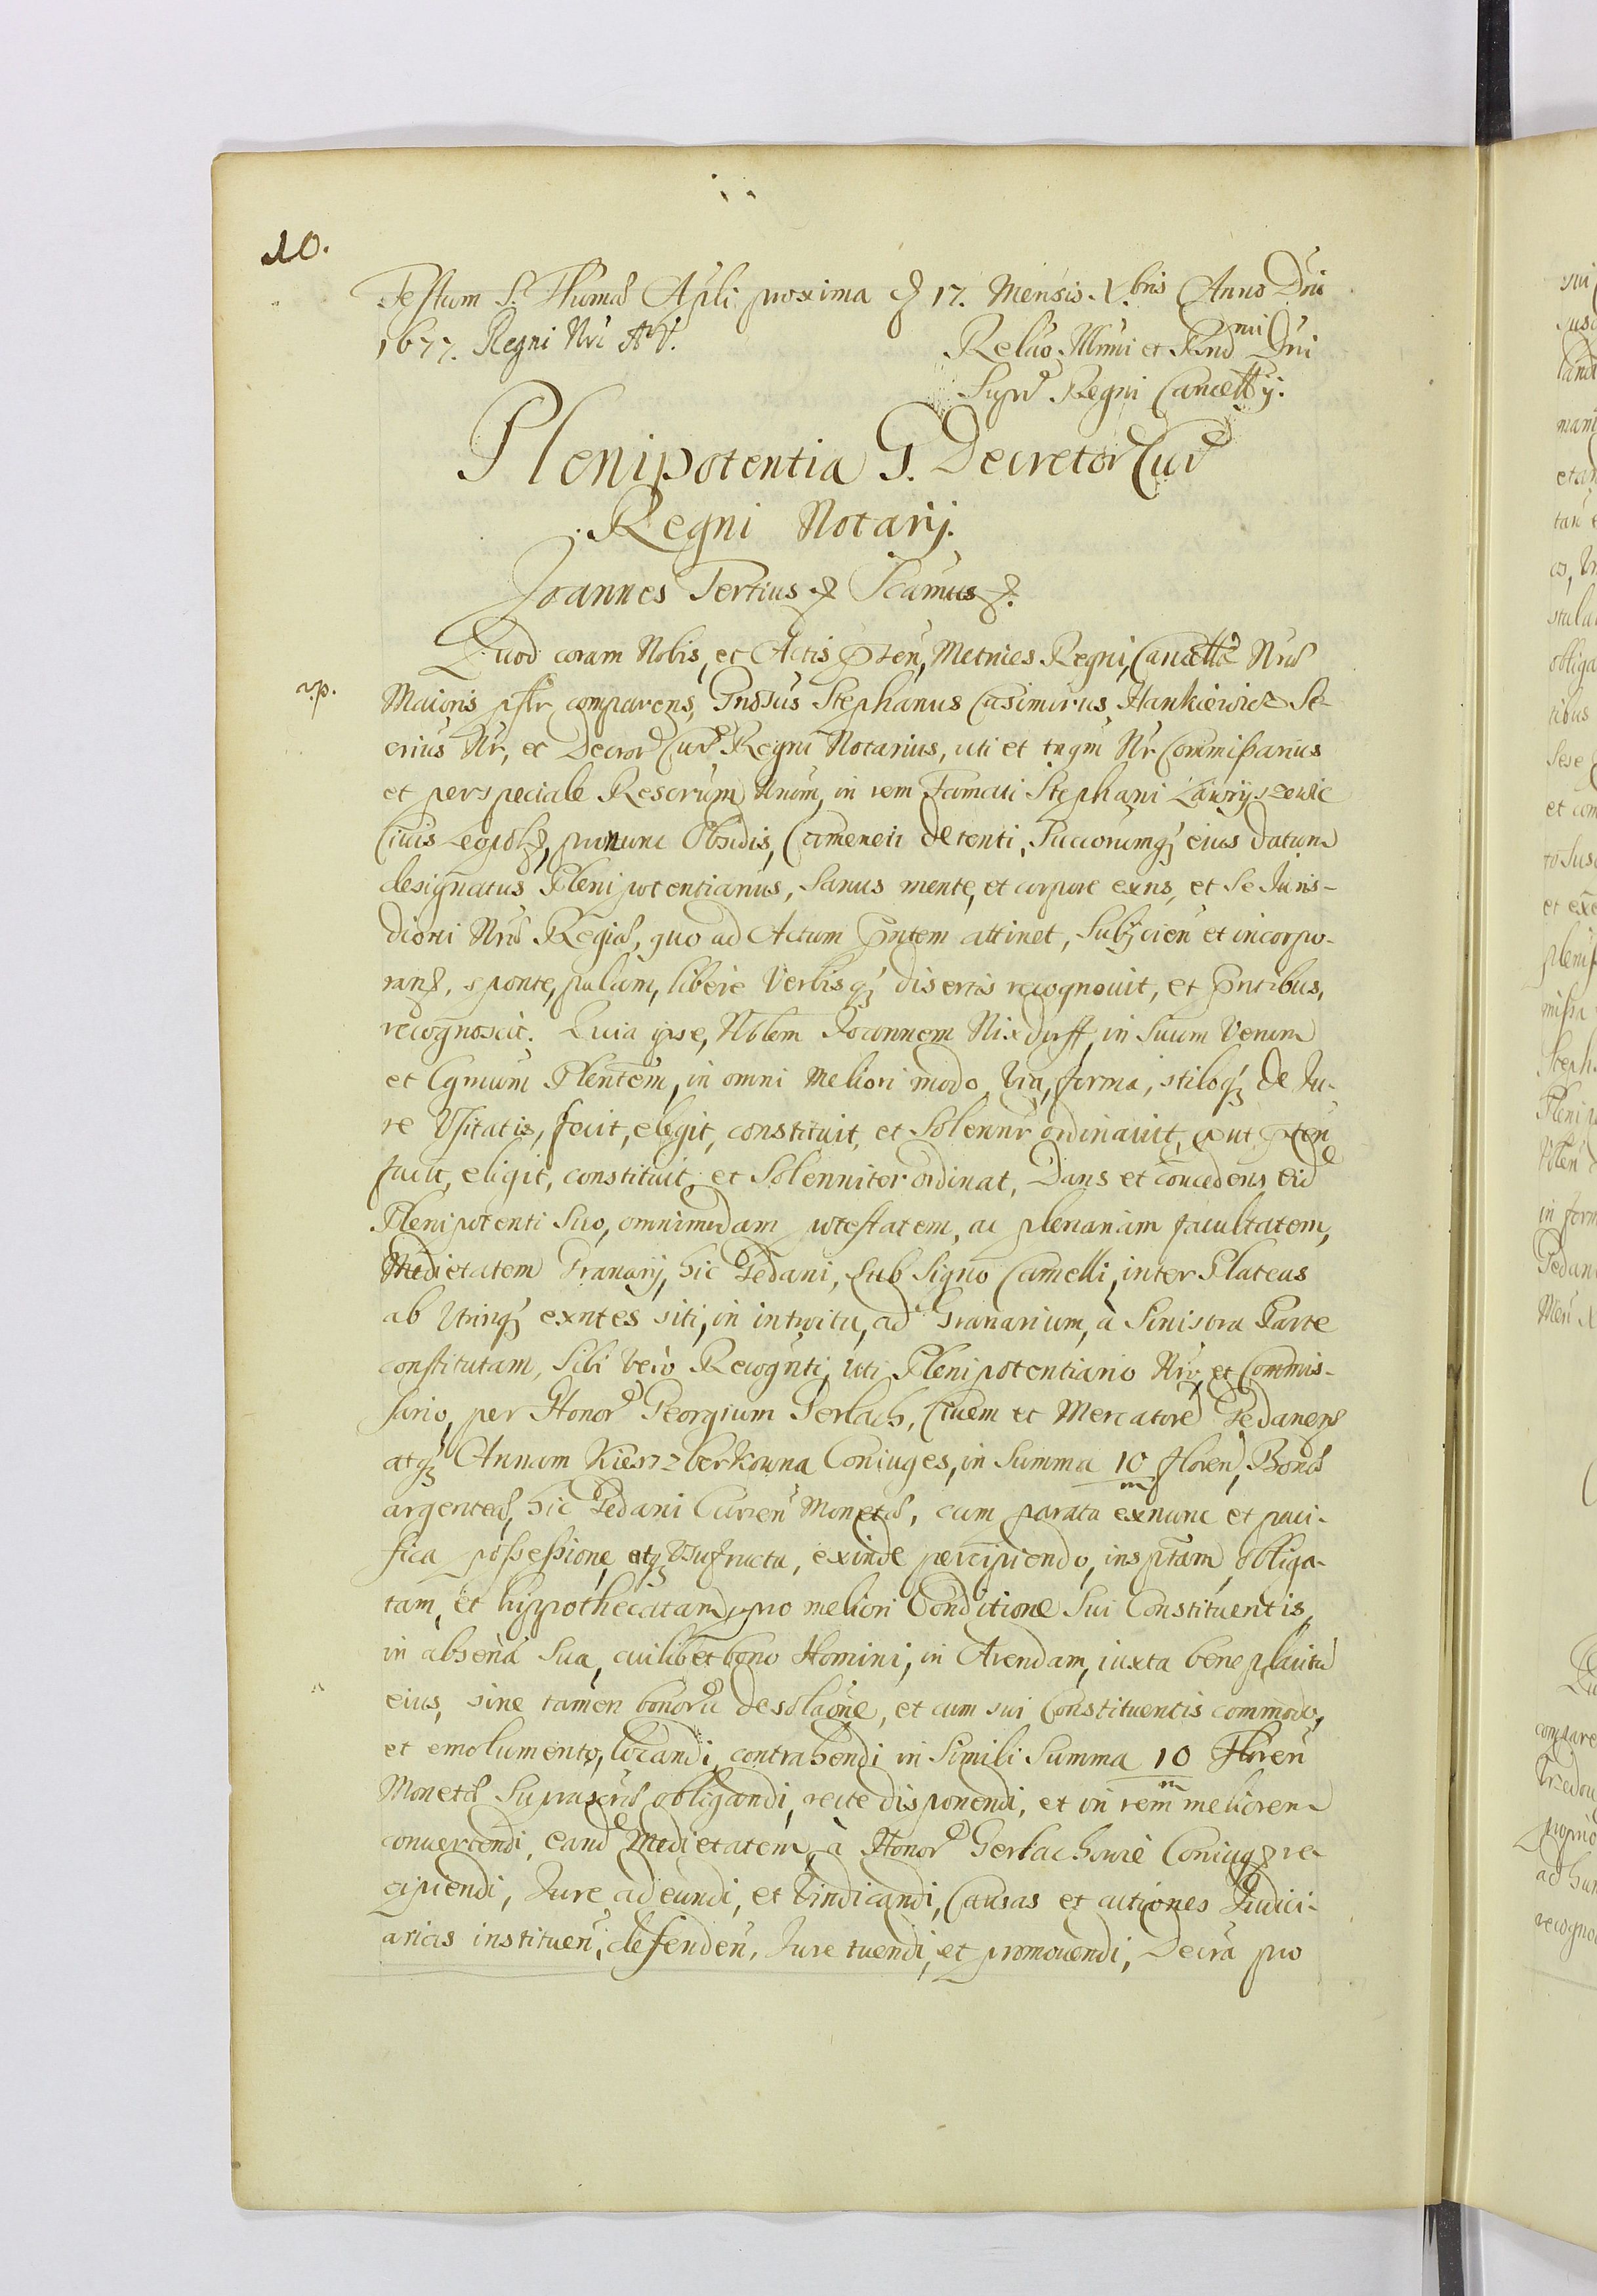 10.
Festum S. Thomæ Apli proxima d 17. Mensis X.bris Anno Dni
1677. Regni Nri A° V.
Relao Illmi et Rnd mi Dni
Supr. Regni Cancellrij.
Plenipotentia G. Decretor Cur
Regni Notarij.
Joannes Tertius & Scamus &.
Quod coram Nobis, et Actis pten, Metrices Regni, Cancellæ Nræ
Maioris psr comparens, Gnosus Stephanus Casimirus Hankiewicz Se-
crius Nr, et Decror Cur Regni Notarius, uti et tnqm Nr Commissarius
et per speciale Rescrum Nrum, in rem Famati Stephani Lawryszewic
Civis Leopol, pronunc Obsidis, Cameneci detenti, Succorumq eius datum
designatus Plenipotentiarius, Sanus mente, et corpore exns, et Se Juris-
dictni Nræ Regiæ, quo ad Actum pntem attinet, Subijcien et incorpo-
rans, sponte, palam, libere Verbisq disertis recognovit, et pntibus,
recognoscit. Quia ipse, Nblem Joannem Nixdorff, in Suum Verum
et Lgmum Plentem, in omni Meliori modo, via, forma, stiloq de Ju-
re Usitatis, fecit, elegit, constituit, et Solennr ordinavit, prout pten
facit, eligit, constituit, et Solenniter ordinat, Dans et concedens eid
Plenipotenti Suo, omnimodam potestatem, ac plenariam facultatem,
Medietatem Granarij, hic Gedani, Sub Signo Camelli, inter Plateas
ab Utrinq exntes siti, in introitu, ad Granarium, à Sinistra Parte
constitutam, Sibi vero Recognti, uti Plenipotentiario Nro, et Commis-
sario, per Honor Georgium Gerlach, Civem et Mercatore Gedanens
atq Annam Kierszberkowna Coniuges, in Summa 10 m floren, Bonæ
argenteæ, hic Gedani Curren Monetæ, cum parata exnunc et paci-
fica possessione, atq Usufructu, exinde percipiendo, insptam, obliga-
tam, et hyppothecatam, pro meliori Conditione Sui Constituentis,
in absena Sua, cuilibet bono Homini, in Arendam, iuxta beneplacitu
eius, sine tamen bonoru desolaone, et cum sui Constituentis commodo,
et emolumento, locandi, contrahendi in Simili Summa 10 m Floren
Monetæ Suprascriæ obligandi, recte disponendi, et in rem meliorem
convertendi, eand Medietatem, à Honor Gerlachowie Coniug re-
cipiendi, Jure adeundi, et vindicandi, Causas et actiones Judici-
arias instituen, defenden, Jure tuendi, et promovendi, Decra pro